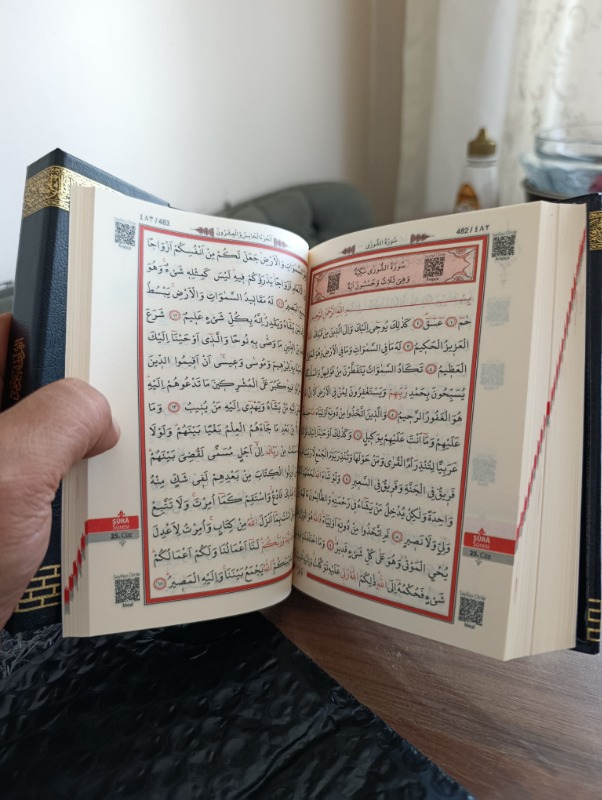 482 / ٤٨٢
سُورَةُ الشُّورٰى
سُورَةُ الشُّورٰى مَكِّيَّةٌ
وَهِيَ ثَلَاثٌ وَخَمْسُونَ اٰيَةً
بِسْمِ اللّٰهِ الرَّحْمٰنِ الرَّحِيمِ
حٰمٓ ﴿١﴾ عٓسٓقٓ ﴿٢﴾ كَذٰلِكَ يُوحٓى اِلَيْكَ وَاِلَى الَّذِينَ مِنْ قَبْلِكَ
الْعَزِيزُ الْحَكِيمُ ﴿٣﴾ لَهُ مَا فِى السَّمٰوَاتِ وَمَا فِى الْاَرْضِ وَهُوَ
الْعَظِيمُ ﴿٤﴾ تَكَادُ السَّمٰوَاتُ يَتَفَطَّرْنَ مِنْ فَوْقِهِنَّ
يُسَبِّحُونَ بِحَمْدِ رَبِّهِمْ وَيَسْتَغْفِرُونَ لِمَنْ فِى الْاَرْضِ اَلَٓا اِنَّ
هُوَ الْغَفُورُ الرَّحِيمُ ﴿٥﴾ وَالَّذِينَ اتَّخَذُوا مِنْ دُونِهٓ اَوْلِيَٓاءَ
عَلَيْهِمْ وَمَٓا اَنْتَ عَلَيْهِمْ بِوَكِيلٍ ﴿٦﴾ وَكَذٰلِكَ اَوْحَيْنَٓا
عَرَبِيًّا لِتُنْذِرَ اُمَّ الْقُرٰى وَمَنْ حَوْلَهَا وَتُنْذِرَ يَوْمَ الْجَمْعِ
فَرِيقٌ فِى الْجَنَّةِ وَفَرِيقٌ فِى السَّعِيرِ ﴿٧﴾ وَلَوْ شَٓاءَ اللّٰهُ
وَاحِدَةً وَلٰكِنْ يُدْخِلُ مَنْ يَشَٓاءُ فِى رَحْمَتِهٖ وَالظَّالِمُونَ
وَلِيٍّ وَلَا نَصِيرٍ ﴿٨﴾ اَمِ اتَّخَذُوا مِنْ دُونِهٓ اَوْلِيَٓاءَ فَاللّٰهُ هُوَ
يُحْيِ الْمَوْتٰى وَهُوَ عَلٰى كُلِّ شَىْءٍ قَدِيرٌ ﴿٩﴾ وَمَا
شَىْءٍ فَحُكْمُهُٓ اِلَى اللّٰهِ ذٰلِكُمُ اللّٰهُ رَبِّى عَلَيْهِ تَوَكَّلْتُ وَاِلَيْهِ
ŞÛRA
SÛRESİ
25. Cüz
Meal
اَلْجُزْءُ الْخَامِسُ وَالْعِشْرُونَ
٤٨٣ / 483
السَّمٰوَاتِ وَالْاَرْضِ جَعَلَ لَكُمْ مِنْ اَنْفُسِكُمْ اَزْوَاجًا
الْاَنْعَامِ اَزْوَاجًا يَذْرَؤُكُمْ فِيهِ لَيْسَ كَمِثْلِهٖ شَىْءٌ وَهُوَ
الْبَصِيرُ ﴿١١﴾ لَهُ مَقَالِيدُ السَّمٰوَاتِ وَالْاَرْضِ يَبْسُطُ
لِمَنْ يَشَٓاءُ وَيَقْدِرُ اِنَّهُ بِكُلِّ شَىْءٍ عَلِيمٌ ﴿١٢﴾ شَرَعَ
مِنَ الدِّينِ مَا وَصّٰى بِهٖ نُوحًا وَالَّذٓى اَوْحَيْنَٓا اِلَيْكَ
اِبْرٰهِيمَ وَمُوسٰى وَعِيسٰٓى اَنْ اَقِيمُوا الدِّينَ
فِيهِ كَبُرَ عَلَى الْمُشْرِكِينَ مَا تَدْعُوهُمْ اِلَيْهِ
اِلَيْهِ مَنْ يَشَٓاءُ وَيَهْدٓى اِلَيْهِ مَنْ يُنِيبُ ﴿١٣﴾ وَمَا
مِنْ بَعْدِ مَا جَٓاءَهُمُ الْعِلْمُ بَغْيًا بَيْنَهُمْ وَلَوْلَا
مِنْ رَبِّكَ اِلٰٓى اَجَلٍ مُسَمًّى لَقُضِىَ بَيْنَهُمْ
اُورِثُوا الْكِتَابَ مِنْ بَعْدِهِمْ لَفِى شَكٍّ مِنْهُ
فَلِذٰلِكَ فَادْعُ وَاسْتَقِمْ كَمَٓا اُمِرْتَ وَلَا تَتَّبِعْ
اٰمَنْتُ بِمَٓا اَنْزَلَ اللّٰهُ مِنْ كِتَابٍ وَاُمِرْتُ لِاَعْدِلَ
وَرَبُّكُمْ لَنَٓا اَعْمَالُنَا وَلَكُمْ اَعْمَالُكُمْ
اَللّٰهُ يَجْمَعُ بَيْنَنَا وَاِلَيْهِ الْمَصِيرُ ﴿١٥﴾
ŞÛRA
SÛRESİ
25. Cüz
Meal